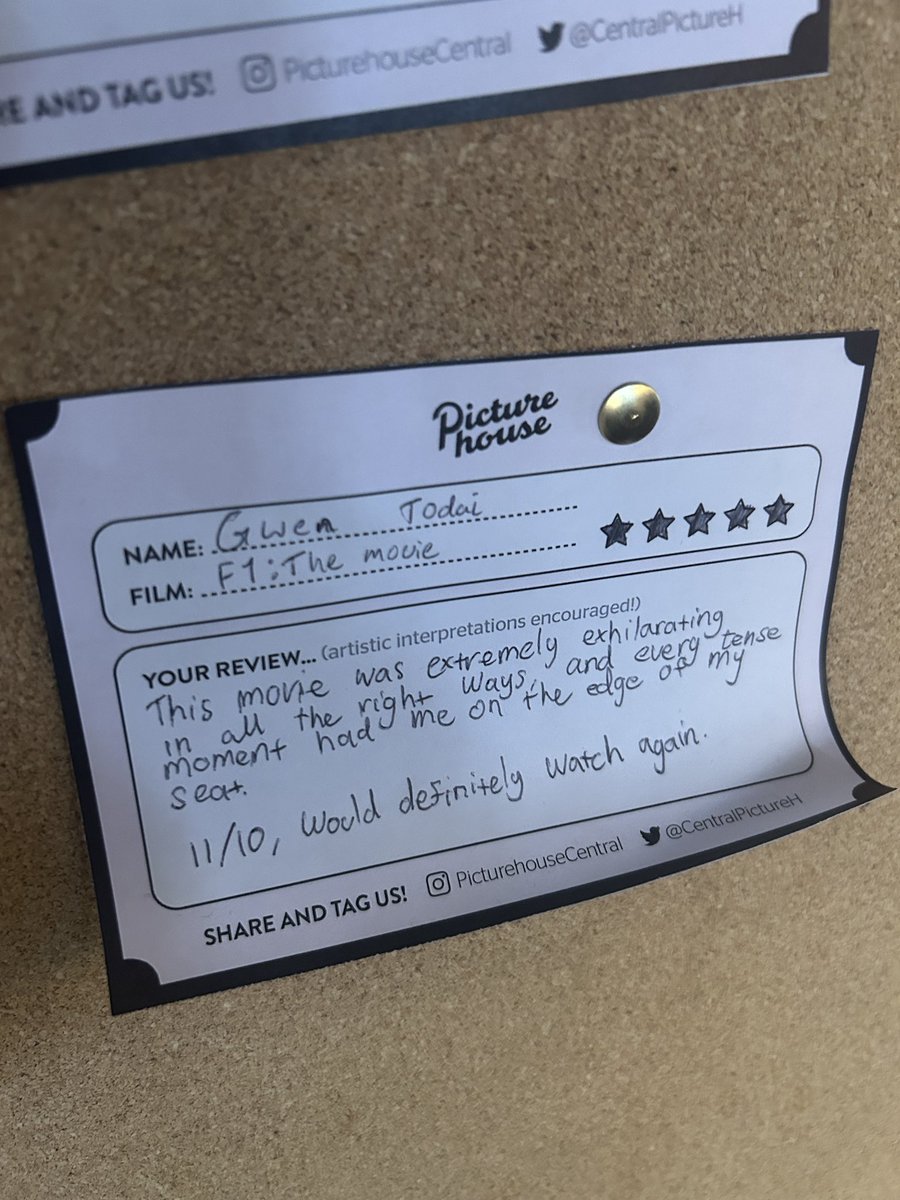 RE AND TAG US! PicturehouseCentral @CentralPictureH
Picture
house
NAME: Gwen Todai
FILM: F1: The movie
YOUR REVIEW... (artistic interpretations encouraged!)
This movie was extremely exhilarating
in all the right ways, and every tense
moment had me on the edge of my
seat.
11/10, would definitely watch again.
SHARE AND TAG US! PicturehouseCentral @CentralPictureH